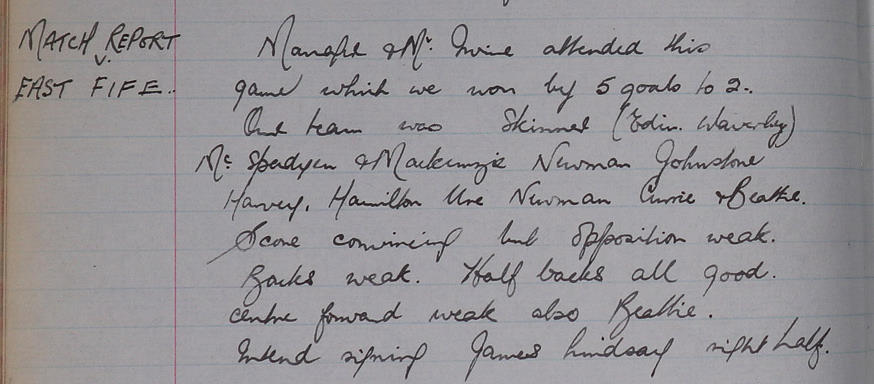 MATCH REPORT
EAST FIFE.
Manager & Mr. Irvine attended this
game which we won by 5 goals to 2.
Our team was Skinner (Edin. Waverley)
& Mackenzie Newman Johnstone
Harvey, Hamilton Ure Newman Currie & Beattie.
Score convincing but opposition weak.
Backs weak. Half backs all good.
centre forward weak also Beattie.
Intend signing James Lindsay right half.